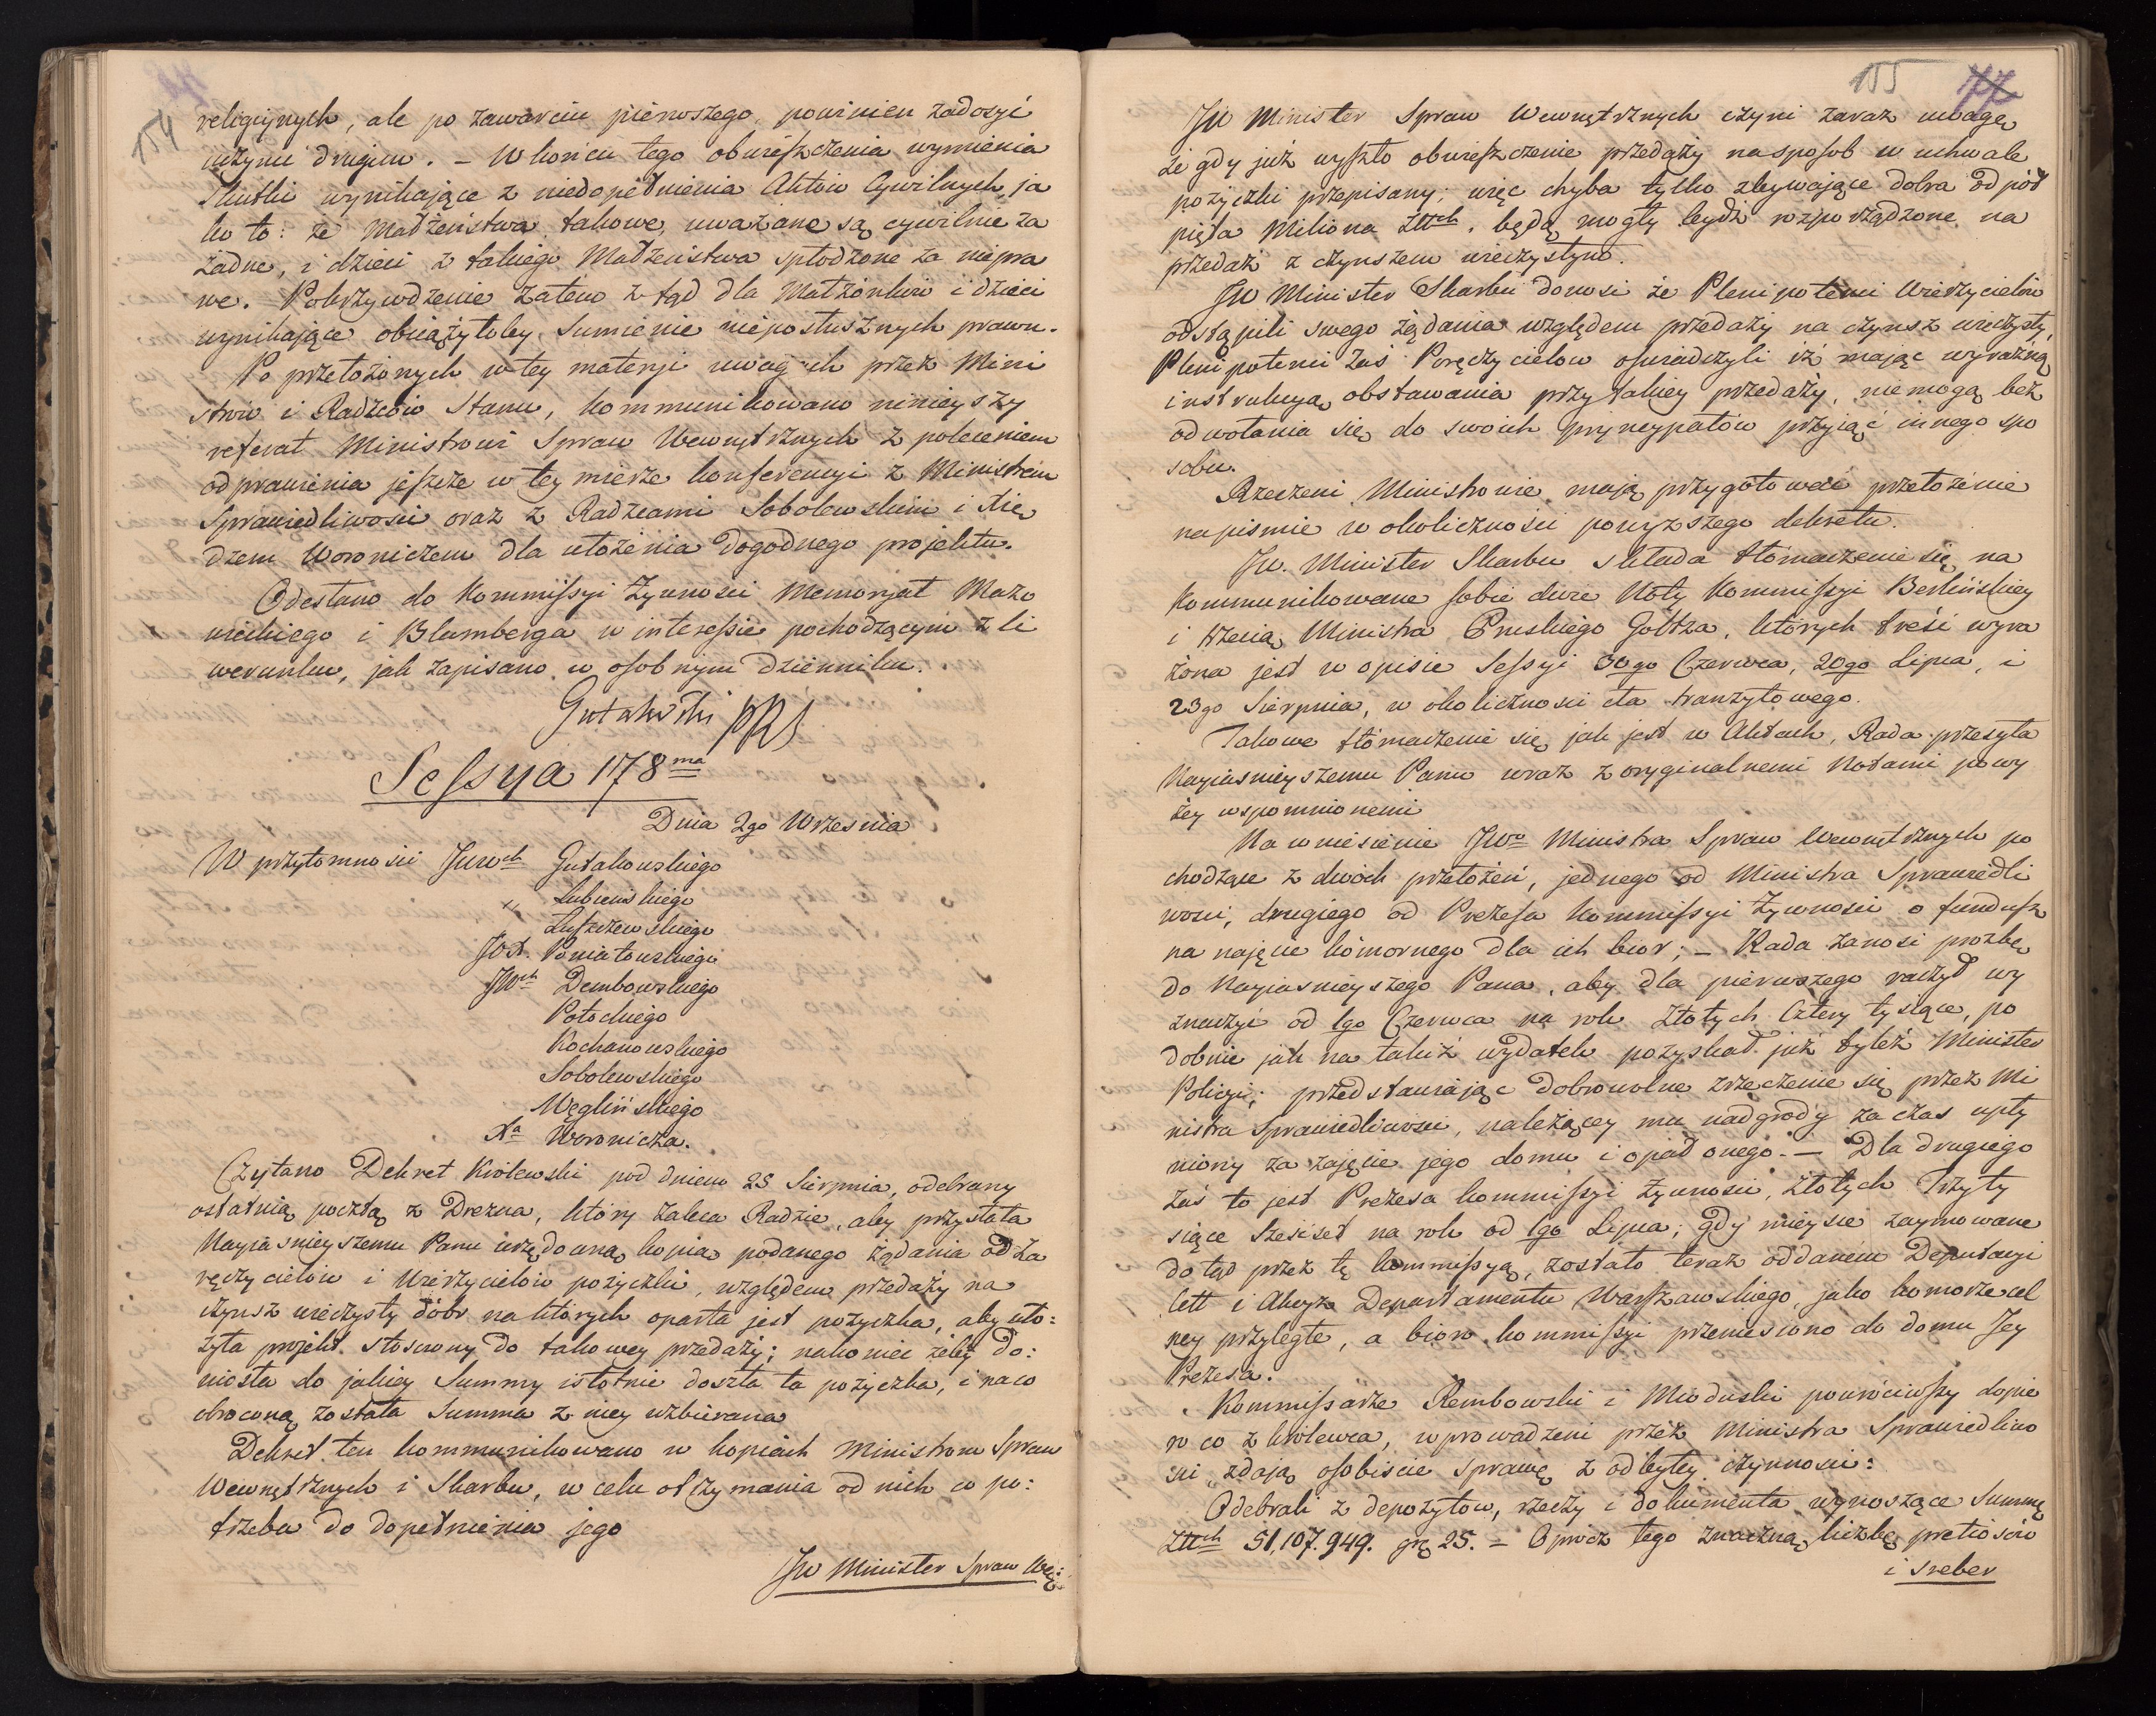 154
religijnych, ale po zawarciu pierwszego, powinien zadosyć
uczynić drugim. – W końcu tego obwieszczenia wymienia
skutki wynikające z niedopełnienia Aktów Cywilnych, ja
ko to: że Małżeństwa takowe, uważane są cywilnie za
żadne, i dzieci z takiego Małżeństwa spłodzone za niepra
we. Pokrzywdzenie zatem z tąd dla Małżonków i dzieci
wynikające obciążyłoby Sumienie nieposłusznych prawu.
Po przełożonych w tey materji uwagach przez Mini
strów i Radzców Stanu, kommunikowano ninieyszy
referat Ministrowi Spraw Wewnętrznych z poleceniem
odprawienia jeszcze w tey mierze konferencyi z Ministrem
Sprawiedliwości oraz z Radzcami Sobolewskim i Xię
dzem Woroniczem dla ułożenia dogodnego projektu.
Odesłano do Kommissyi Żywności Memoryał Mazo
wieckiego i Blumberga w interessie pochodzącym z li
werunku, jak zapisano w osobnym dzienniku.
Gutakowski PRS
Sessya 178ma
Dnia 2go Września
W przytomności JWWch Gutakowskiego
" Lubieńskiego
Łuszczewskiego
JOX. Poniatowskiego
JWch Dembowskiego
Potockiego
Kochanowskiego
Sobolewskiego
Węglińskiego
Xa Woronicza.
Czytano Dekret Królewski pod dniem 28 Sierpnia, odebrany
ostatnią pocztą z Drezna, który zaleca Radzie, aby przysłała
Nayiaśnieyszemu Panu urzędowną kopią podanego żądania od Za
ręczycielów i Wierzycielów pożyczki, względem przedaży na
czynsz wieczysty dóbr na których oparta jest pożyczka, aby uło:
żyła projekt stosowny do takowey przedaży; nakoniec żeby do:
niosła do jakiey Summy istotnie doszła ta pożyczka, i na co
obroconą została Summa z niey wzbierana
Dekret ten kommunikowano w kopiach Ministrom Spraw
Wewnętrznych i Skarbu, w celu otrzymania od nich co po:
trzeba do dopełnienia jego
JW Minister Spraw We:
155
JW Minister Spraw Wewnętrznych czyni zaraz uwagę
że gdy już wyszło obwieszczenie przedaży na sposob w uchwale
pożyczki przepisany; więc chyba tylko zbywające dobra od pół
pięta Miliona Złtch, będą mogły bydź rozporządzone na
przedaż z czynszem wieczystym.
JW Minister Skarbu donosi że Plenipotenci Wierzycielów
odstąpili swego żądania względem przedaży na czynsz wieczysty,
Plenipotenci zaś Poręczycielow oświadczyli iż mając wyraźną
instrukcyą obstawania przy takiey przedaży, nie mogą bez
odwołania się do swoich pryncypałów przyiąć innego spo
sobu.
Rzeczeni Ministrowie mają przygotować przełożenie
na piśmie w okoliczności powyższego dekretu.
JW. Minister Skarbu składa tłómaczenie się na
kommunikowane sobie dwie Noty Kommissyi Berlińskiey
i trzecią Ministra Pruskiego Goltza, których treść wyra
żona jest w opisie Sessyi 30go Czerwca, 20go Lipca, i
23go Sierpnia, w okoliczności cła tranzytowego.
Takowe tłómaczenie się jak jest w Aktach, Rada przesyła
Nayiaśnieyszemu Panu wraz z oryginalnemi Notami powy
żey wspomnionemi
Na wniesienie JWo Ministra Spraw Wewnętrznych po
chodzące z dwóch przełożeń, jednego od Ministra Sprawiedli
wości, drugiego od Prezesa Kommissyi Żywności o fundusz
na najęcie komornego dla ich biór; – Rada zanosi prozbę
do Nayiaśnieyszego Pana, aby dla pierwszego raczył wy
znaczyć od 1go Czerwca na rok Złotych Cztery tysiące, po
dobnie jak na takiż wydatek pozyskał już tyleż Minister
Policyi; przedstawiając dobrowolne zrzeczenie się przez Mi
nistra Sprawiedliwości, należącey mu nadgrody za czas upły
niony za zajęcie jego domu i opał onego. – Dla drugiego
zaś to jest Prezesa kommissyi żywności, złotych Trzy ty
siące sześćset na rok od 1go Lipca; gdy mieysce zaymowane
dotąd przez tę kommissyą, zostało teraz oddanem Deputacyi
Cell i Akcyz Departamentu Warszawskiego jako komorze cel
ney przyległe, a bioro kommissyi przeniesiono do domu Jey
Prezesa.
Kommissarze Rembowski i Mioduski powróciwszy dopie
ro co z Królewca, wprowadzeni przez Ministra Sprawiedliwo
ści zdają osobiście sprawę z odbytey czynności:
Odebrali z depozytow, rzeczy i dokumenta wynoszące Summę
Złtch 51,107.949. gr 25. – Oprócz tego znaczną liczbę pretiosów
i sreber